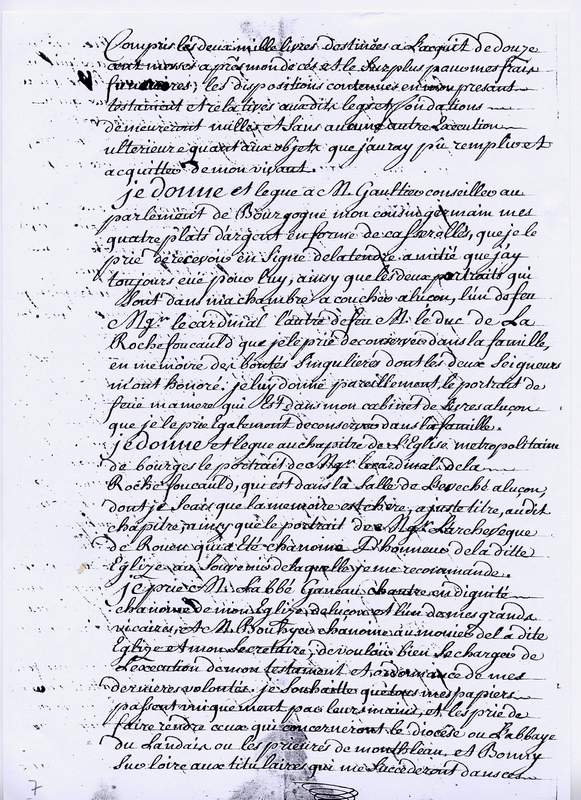 Compris les deux mille livres destinées a l'acquit de douze
cent messes apres mon deces et le surplus pour mes frais
funeraires, les dispositions contenues en mon present
testament et relatives auxdits legs et fondations
demeureront nulles et sans aucune autre Execution
ulterieure quant aux objets que j'auray pu remplir et
acquitter de mon vivant.
je donne et legue a M. Gaultier conseiller au
parlement de Bourgogne mon cousin germain mes
quatre plats d'argent en forme de casserolles, que je le
prie de recevoir en signe de la tendre amitié que j'ay
toujours eüe pour luy, ainsy que les deux portraits qui
sont dans ma chambre a coucher a luçon, l'un de feu
Mgr. le cardinal l'autre de feu M. le duc de La
Rochefoucauld que je le prie de conserver dans la famille,
en memoire des bontés singulieres dont les deux Seigneurs
m'ont honoré. je luy donne pareillement le portrait de
feüe ma mere qui Est dans mon cabinet de livres a luçon
que je le prie egalement de conserver dans la famille.
je donne et legue au chapitre de L'Eglise metropolitaine
de bourges le portrait de Mgr. le cardinal de la
Rochefoucauld, qui est dans la salle de L'eveché a luçon,
dont je scais que la memoire est chere, a juste titre, audit
chapitre, ainsy que le portrait de Mgr. L'archeveque
de Rouen qui a Eté chanoine D'honneur de la ditte
Eglize au souvenir de laquelle je me recommande.
je prie M. L'abbé Ganeau chantre en dignité
chanoine de mon Eglize de luçon et l'un de mes grands
vicaires, et M. Bouthyer chanoine aumonier de la dite
Eglize et mon Secretaire, de vouloir bien se charger de
L'execution de mon testament et ordonnance de mes
dernieres volontés. je souhaitte que tous mes papiers
passent uniquement par leurs mains, et les prie de
faire rendre ceux qui concerneront le diocese ou L'abbaye
du Landais ou les prieurés de et Bonny
Sur loire aux titulaires qui me Succederont dans ces
7